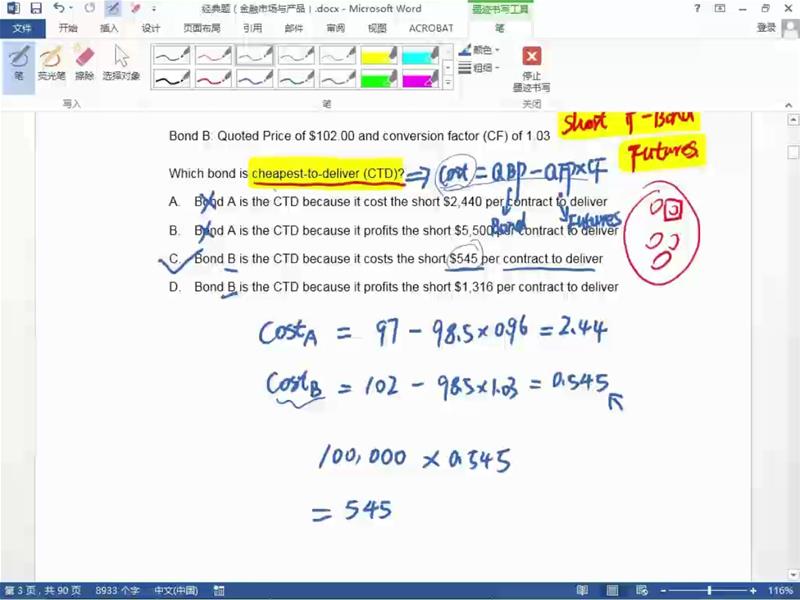 经典题（金融市场与产品）.docx - Microsoft Word
墨迹书写工具
登录
文件 开始 插入 设计 页面布局 引用 邮件 审阅 视图 ACROBAT 笔
笔 荧光笔 擦除 选择对象
颜色
粗细
停止
墨迹书写
写入 笔 关闭
Short T-Bond
Futures
Bond B: Quoted Price of $102.00 and conversion factor (CF) of 1.03
Which bond is cheapest-to-deliver (CTD)? ⇒ Cost = QBP - QFP×CF
Bond Futures
A. Bond A is the CTD because it cost the short $2,440 per contract to deliver
B. Bond A is the CTD because it profits the short $5,500 per contract to deliver
C. Bond B is the CTD because it costs the short $545 per contract to deliver
D. Bond B is the CTD because it profits the short $1,316 per contract to deliver
Cost_A = 97 - 98.5×0.96 = 2.44
Cost_B = 102 - 98.5×1.03 = 0.545
100,000 × 0.545
= 545
第 3 页，共 90 页 8933 个字 中文(中国) 116%